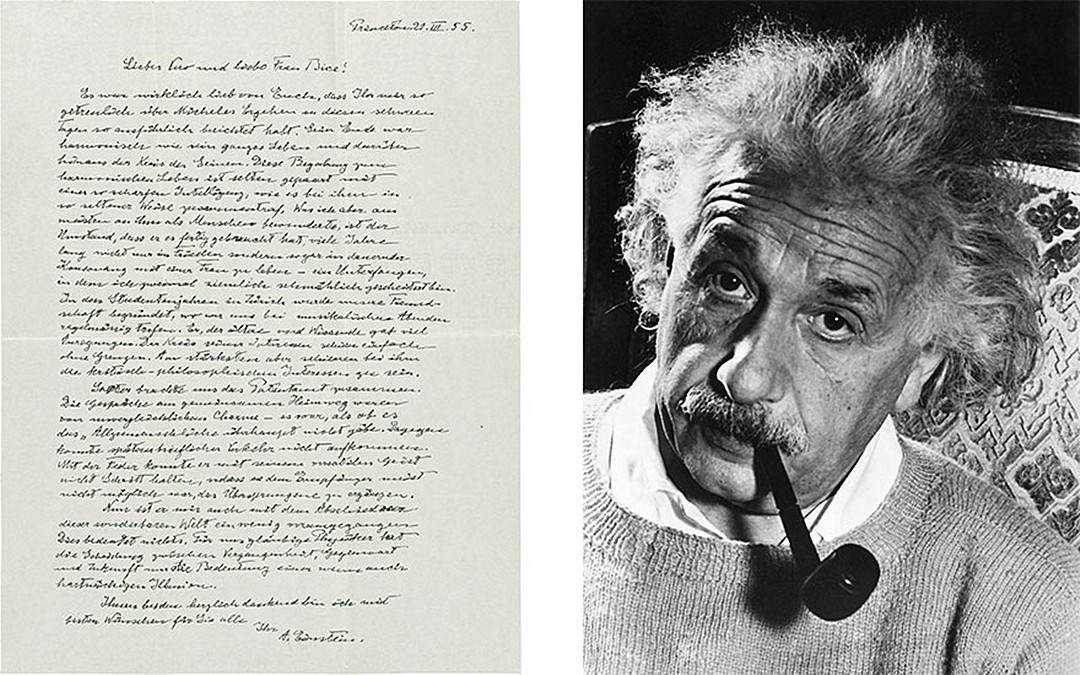 Princeton 21. III. 55.
Lieber Vero und liebe Frau Bice!
Es war wirklich lieb von Euch, dass Ihr mir so
getreulich über Micheles Ergehen in diesen schweren
Tagen so ausführlich berichtet habt. Sein Ende war
harmonisch wie sein ganzes Leben und darüber
hinaus der Kreis der Seinen. Diese Begabung zum
harmonischen Leben ist selten gepaart mit
einer so scharfen Intelligenz, wie es bei ihm in
so seltener Weise zusammentraf. Was ich aber am
meisten an ihm als Menschen bewunderte, ist der
Umstand, dass er es fertig gebraucht hat, viele Jahre
lang nicht nur in Frieden sondern sogar in dauernder
Konsonanz mit einer Frau zu leben – ein Unterfangen,
in dem ich zweimal ziemlich schmählich gescheitert bin.
In den Studentenjahren in Zürich wurde unsere Freund-
schaft begründet, wo wir uns bei musikalischen Abenden
regelmässig trafen. Er, der ältere und Wissende gab viel
Anregungen. Der Kreis seiner Interessen schien einfach
ohne Grenzen. Am stärksten aber schienen bei ihm
die kritisch-philosophischen Interessen zu sein.
Später brachte uns das Patentamt zusammen.
Die Gespräche am gemeinsamen Heimweg waren
von unvergleichlichem Charme – es war, als ob es
das „Allzumenschliche" überhaupt nicht gäbe. Dagegen
konnte später brieflicher Verkehr nicht aufkommen.
Mit der Feder konnte er mit seinem Geist
nicht Schritt halten, sodass es dem Empfänger meist
nicht möglich war, das Übersprungene zu ergänzen.
Nun ist er mir auch mit dem Abschied von
dieser sonderbaren Welt ein wenig vorausgegangen.
Dies bedeutet nichts. Für uns gläubige Physiker hat
die Scheidung zwischen Vergangenheit, Gegenwart
und Zukunft nur die Bedeutung einer wenn auch
hartnäckigen Illusion.
Ihnen beiden herzlich dankend bin ich mit
besten Wünschen für Sie alle
Ihr
A. Einstein.